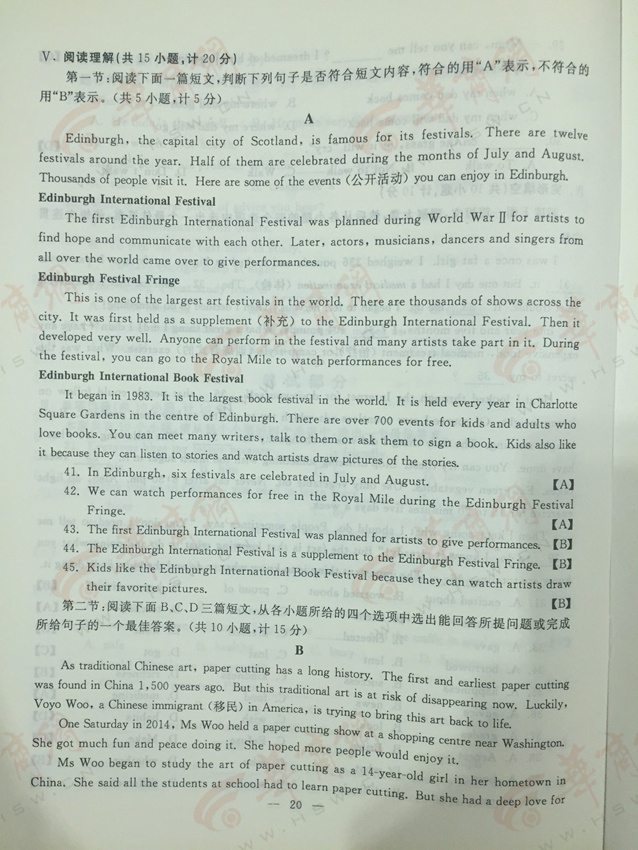 Ⅴ. 阅读理解(共 15 小题,计 20 分)
第一节:阅读下面一篇短文,判断下列句子是否符合短文内容,符合的用“A”表示,不符合的
用“B”表示。(共 5 小题,计 5 分)
A
Edinburgh, the capital city of Scotland, is famous for its festivals. There are twelve
festivals around the year. Half of them are celebrated during the months of July and August.
Thousands of people visit it. Here are some of the events (公开活动) you can enjoy in Edinburgh.
Edinburgh International Festival
The first Edinburgh International Festival was planned during World War Ⅱ for artists to
find hope and communicate with each other. Later, actors, musicians, dancers and singers from
all over the world came over to give performances.
Edinburgh Festival Fringe
This is one of the largest art festivals in the world. There are thousands of shows across the
city. It was first held as a supplement (补充) to the Edinburgh International Festival. Then it
developed very well. Anyone can perform in the festival and many artists take part in it. During
the festival, you can go to the Royal Mile to watch performances for free.
Edinburgh International Book Festival
It began in 1983. It is the largest book festival in the world. It is held every year in Charlotte
Square Gardens in the centre of Edinburgh. There are over 700 events for kids and adults who
love books. You can meet many writers, talk to them or ask them to sign a book. Kids also like
it because they can listen to stories and watch artists draw pictures of the stories.
41. In Edinburgh, six festivals are celebrated in July and August. 【A】
42. We can watch performances for free in the Royal Mile during the Edinburgh Festival
Fringe. 【A】
43. The first Edinburgh International Festival was planned for artists to give performances. 【B】
44. The Edinburgh International Festival is a supplement to the Edinburgh Festival Fringe. 【B】
45. Kids like the Edinburgh International Book Festival because they can watch artists draw
their favorite pictures. 【B】
第二节:阅读下面 B、C、D 三篇短文,从各小题所给的四个选项中选出能回答所提问题或完成
所给句子的一个最佳答案。(共 10 小题,计 15 分)
B
As traditional Chinese art, paper cutting has a long history. The first and earliest paper cutting
was found in China 1,500 years ago. But this traditional art is at risk of disappearing now. Luckily,
Voyo Woo, a Chinese immigrant (移民) in America, is trying to bring this art back to life.
One Saturday in 2014, Ms Woo held a paper cutting show at a shopping centre near Washington.
She got much fun and peace doing it. She hoped more people would enjoy it.
Ms Woo began to study the art of paper cutting as a 14-year-old girl in her hometown in
China. She said all the students at school had to learn paper cutting. But she had a deep love for
— 20 —